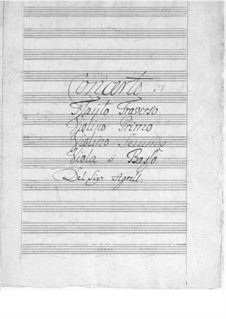 Concerto
Flauto Traverso
Violino Primo
Violino Secundo
Viola e Basso
Del Sigr Agrell: